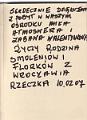 SERDECZNIE DZIĘKUJEMY
Z POBYT W NASZYM
OŚRODKU MIŁA
ATMOSFERA I
ZABAWA WALENTYNKOWA
ŻYCZY RODZINA
SMOLENIÓW I
FLORKÓW Z
WROCŁAWIA
RZECZKA 10.02.07